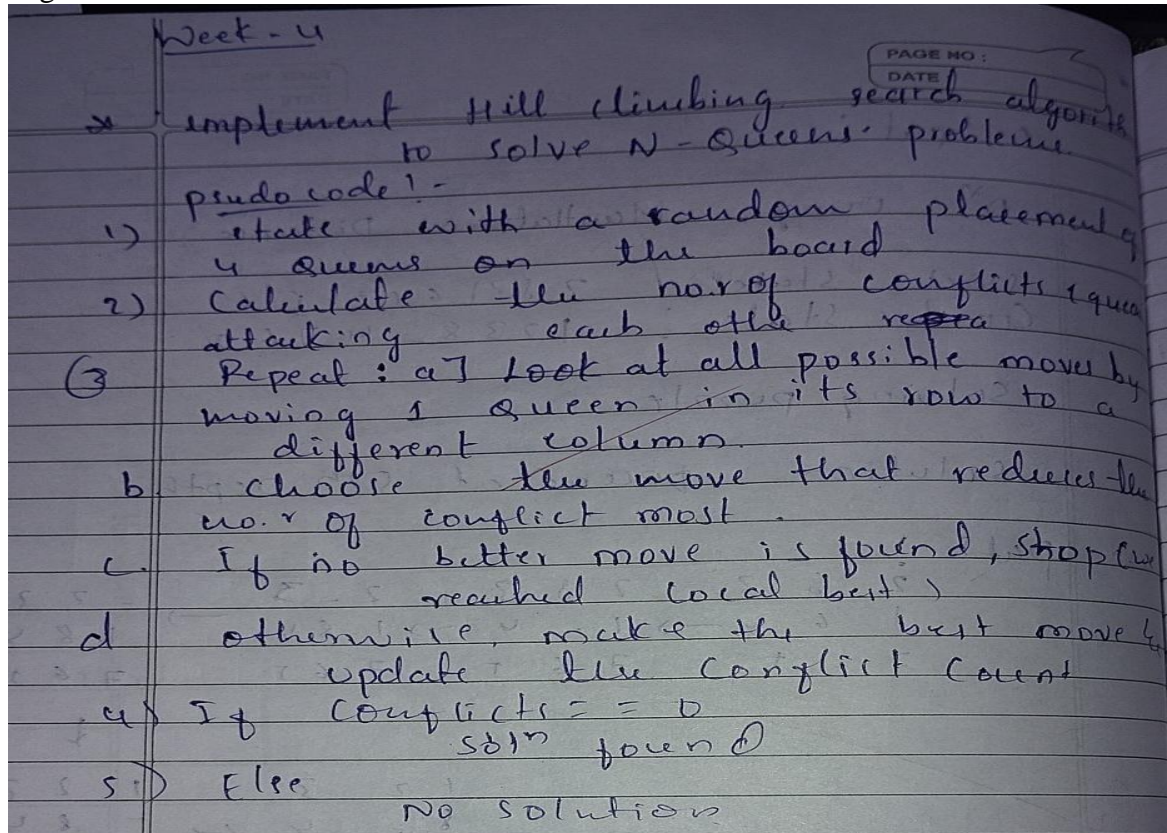 Week - 4
PAGE NO :
DATE
* implement Hill climbing search algorith
to solve N - Queens problem
psudo code : -
1) state with a random placement of
4 Queens on the board
2) Calculate the no. r of conflicts ( quee
attacking each othe
3 Repeat : a] Look at all possible moves by
moving 1 Queen in its row to a
different column.
b choose the move that reduces the
no. r of conflict most .
c. If no better move is found, stop (we
reached local best )
d otherwise, make the best move &
update the conflict count
4) If conflicts = = 0
soln found
5) Else
No solution